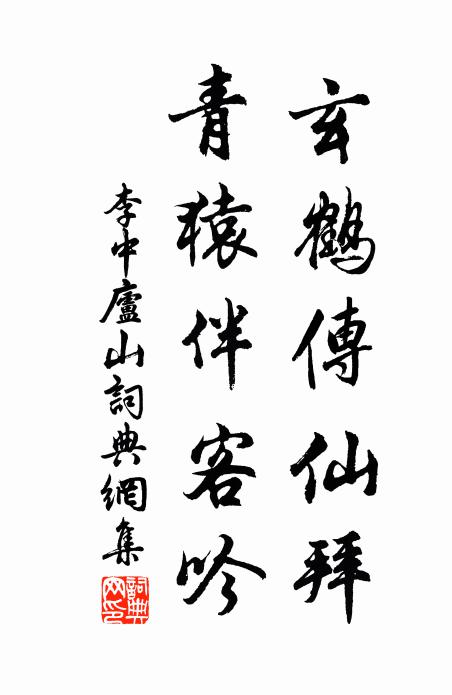 玄鶴傳仙拜
青猿伴客吟
李中廬山詞典網集
詞典網印